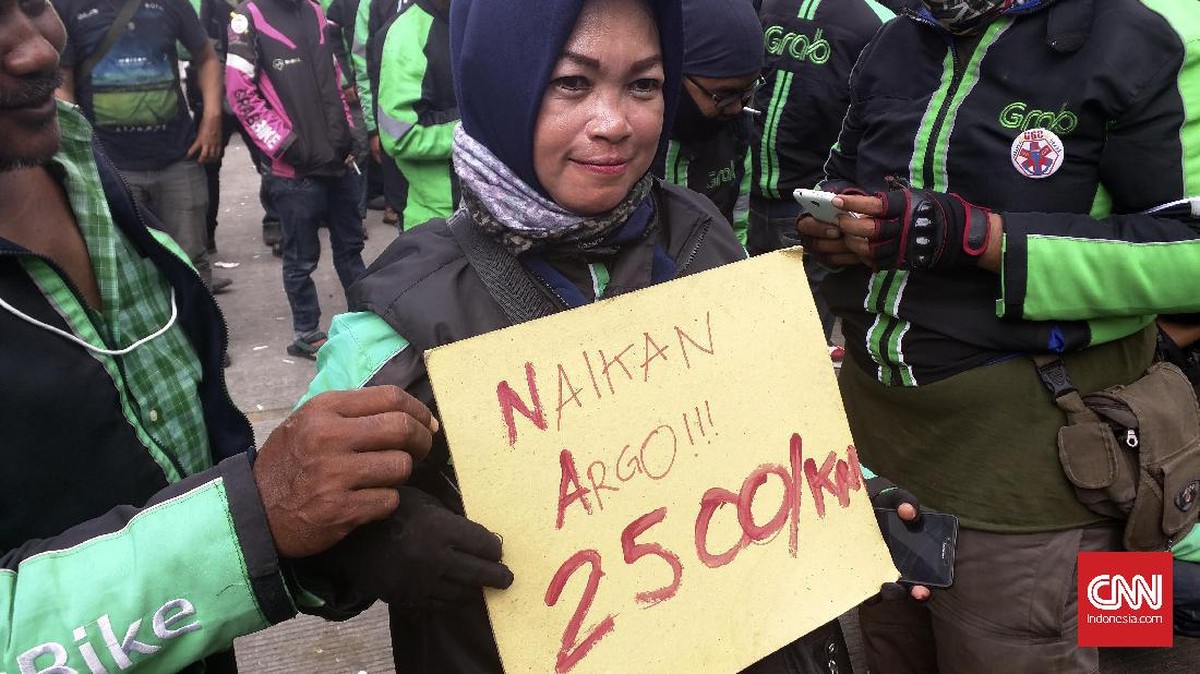 Grab
Grab
NAIKAN
ARGO!!!
2500/KM
Bike
CNN
Indonesia.com